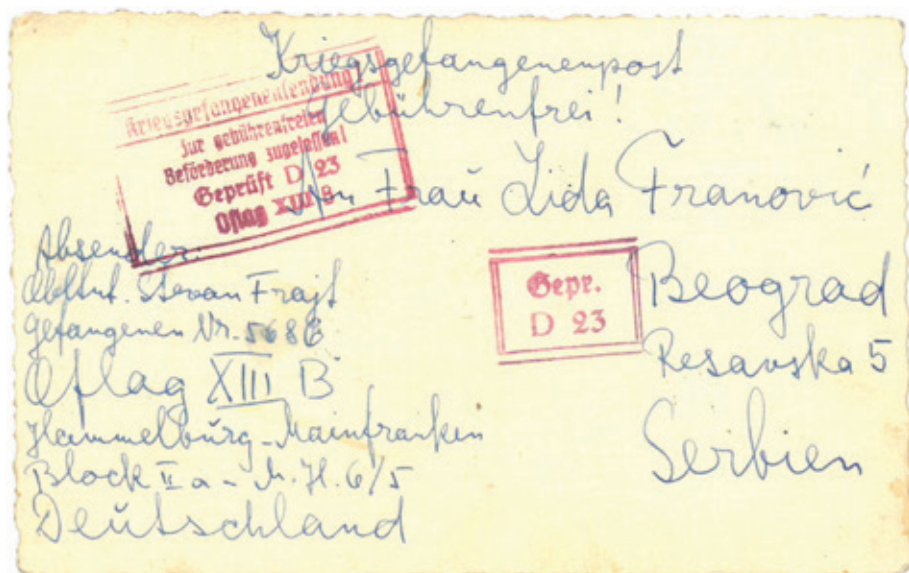 Kriegsgefangenenpost
Gebührenfrei!
Kriegsgefangenensendung
zur gebührenfreien
Beförderung zugelassen!
Geprüft D 23
Oflag XIII B
An Frau Lida Franović
Beograd
Resavska 5
Serbien
Gepr.
D 23
Absender:
Stevan Frajt
Gefangenen Nr. 5686
Oflag XIII B
Hammelburg-Mainfranken
Block II a - M.H. 6/5
Deutschland